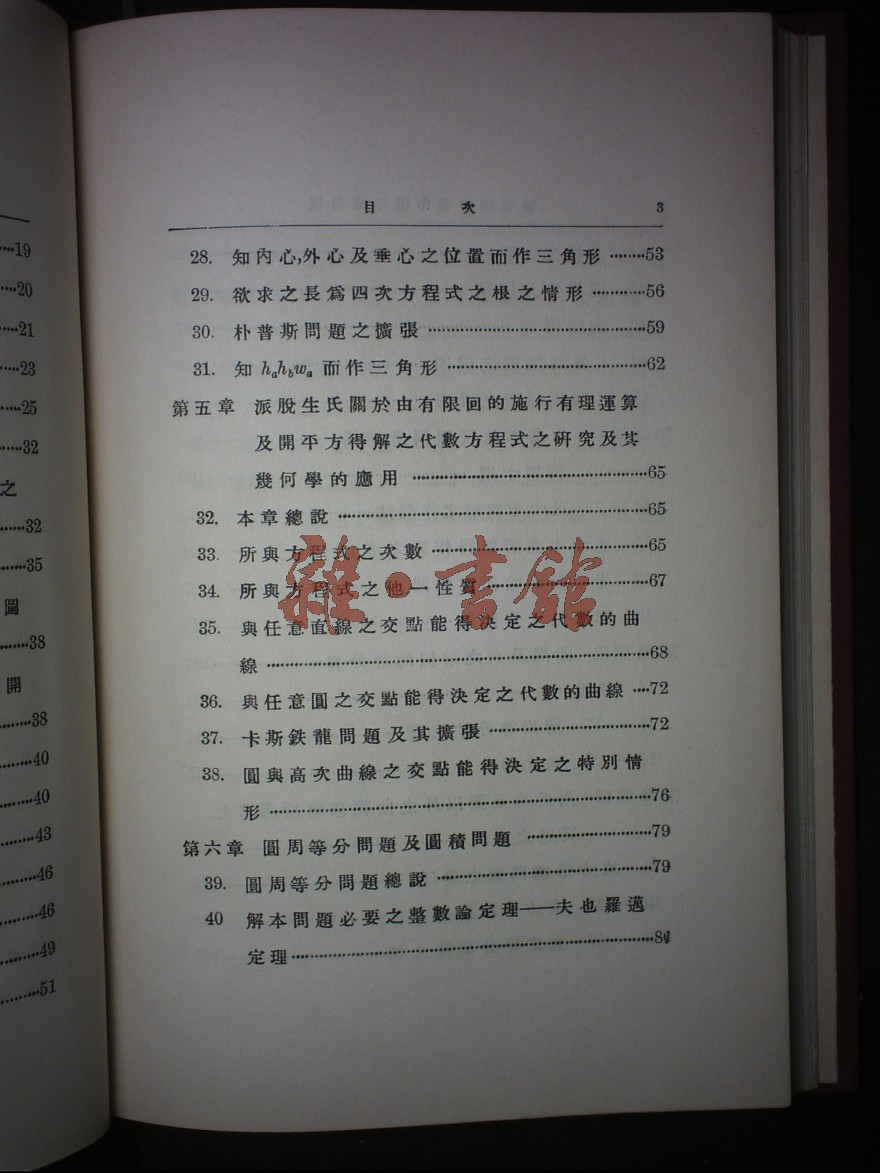 19
20
21
23
25
32
之
32
35
圖
38
開
38
40
40
43
46
46
49
51
目 次 3
28. 知內心,外心及垂心之位置而作三角形 ………53
29. 欲求之長爲四次方程式之根之情形 …………56
30. 朴普斯問題之擴張 ……………………………59
31. 知 hₐh_bwₐ 而作三角形 ……………………………62
第五章 派脫生氏關於由有限回的施行有理運算
及開平方得解之代數方程式之硏究及其
幾何學的應用 ………………………………65
32. 本章總說 ………………………………………65
33. 所與方程式之次數 ……………………………65
34. 所與方程式之他一性質 ………………………67
35. 與任意直線之交點能得決定之代數的曲
線 …………………………………………………68
36. 與任意圓之交點能得決定之代數的曲線 ….72
37. 卡斯鉄龍問題及其擴張 ………………………72
38. 圓與高次曲線之交點能得決定之特別情
形 …………………………………………………76
第六章 圓周等分問題及圓積問題 ………………79
39. 圓周等分問題總說 ……………………………79
40 解本問題必要之整數論定理——夫也羅邁
定理 ………………………………………………84
雜·書館